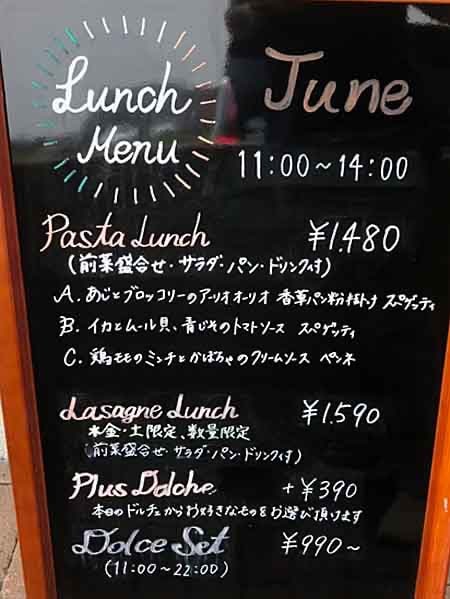 Lunch
Menu
June
11:00~14:00
Pasta Lunch ¥1.480
(前菜盛合せ・サラダ・パン・ドリンク付)
A. あじとブロッコリーのアーリオオーリオ 香草パン粉掛け スパゲッティ
B. イカとムール貝、青じそのトマトソース スパゲッティ
C. 鶏モモのミンチとかぼちゃのクリームソース ペンネ
Lasagne Lunch ¥1.590
木金・土限定、数量限定
(前菜盛合せ・サラダ・パン・ドリンク付)
Plus Dolche +¥390
本日のドルチェからお好きなものをお選び頂けます
Dolce Set ¥990~
(11:00~22:00)